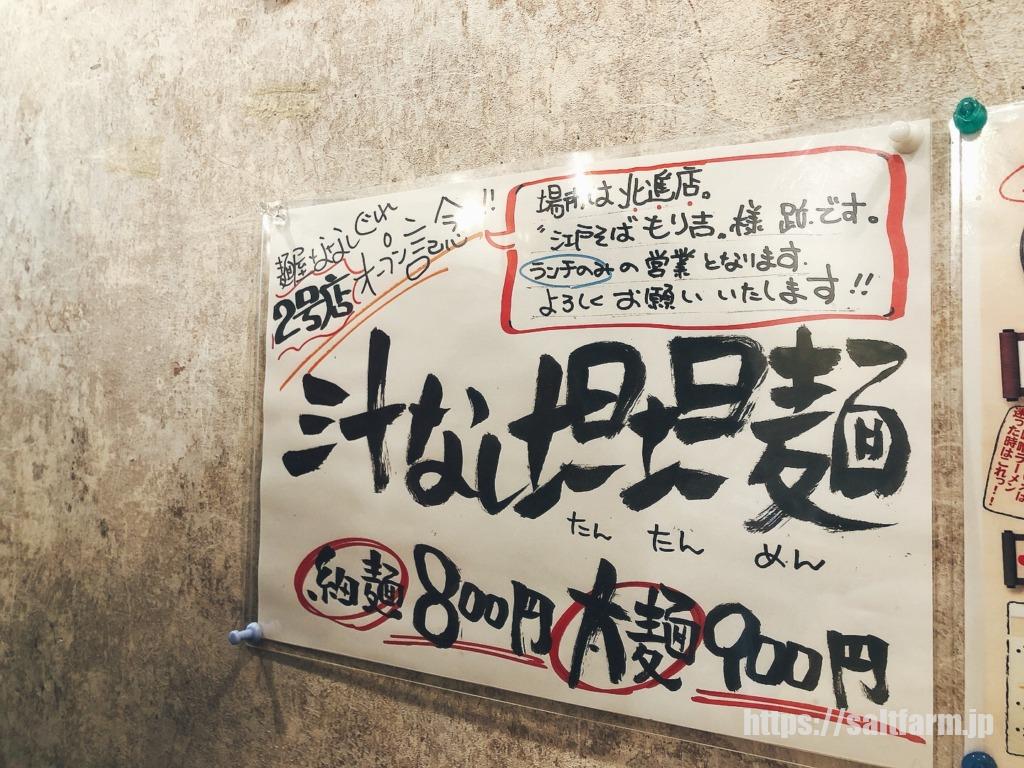 麺屋ななしぐれ
2号店オープン記念!!
場所は北進店。
“江戸そば もり吉„様 跡です。
ランチのみの営業となります.
よろしくお願いいたします!!
汁なし坦坦麺
たん たん めん
細麺 800円 太麺 900円
https://saltfarm.jp